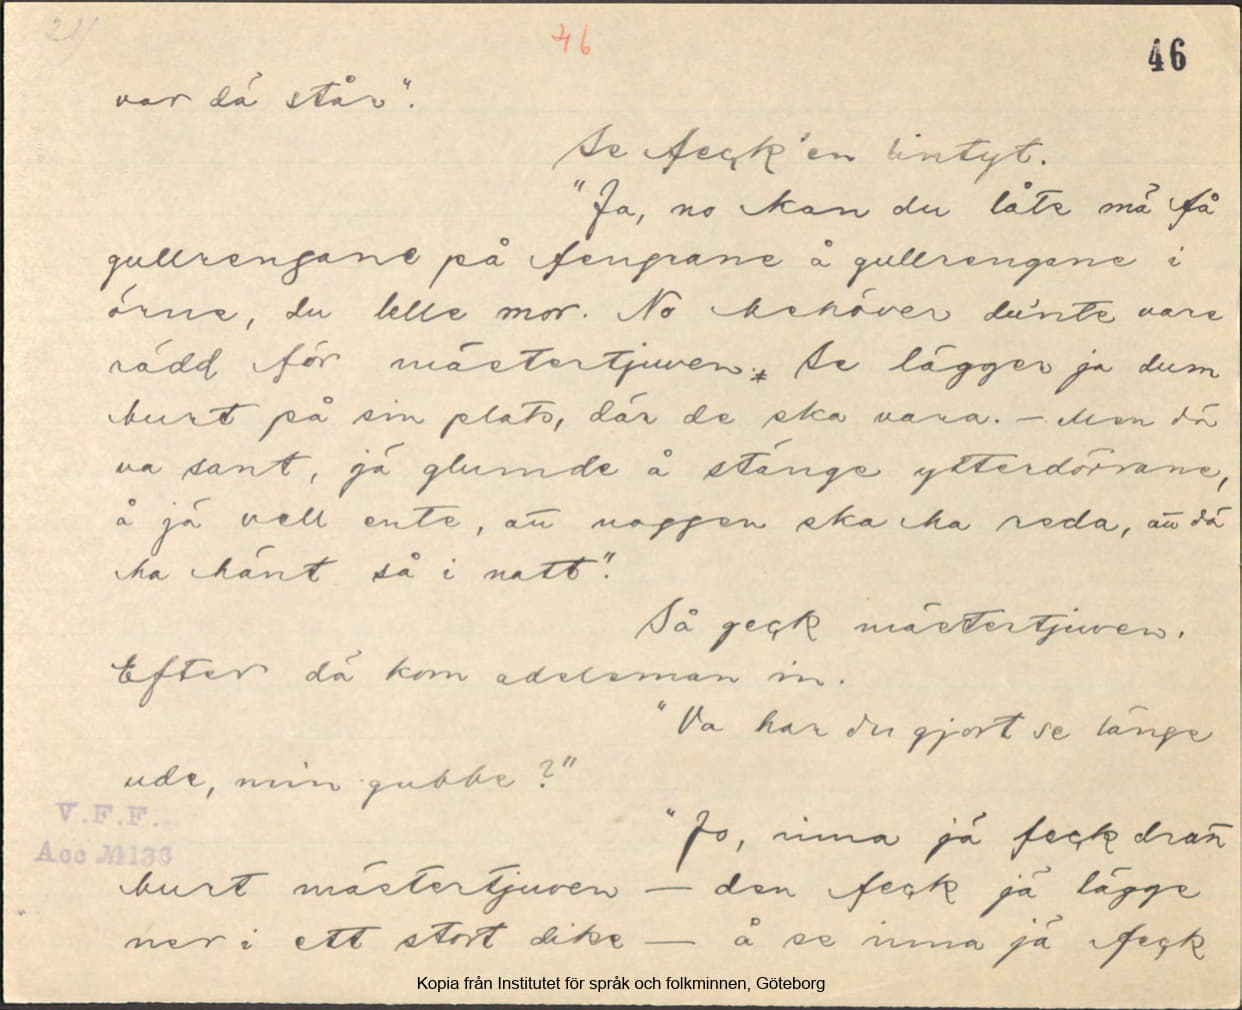 21/
46
46
var dä står".
Se feck'en lintyt.
"Ja, no kan du låte mä få
gullrengane på fengrane å gullrengane i
örne, du lelle mor. No behöver du'nte vare
rädd för mästertjuven.* Se lägger ja dum
burt på sin plats, där de ska vara. — Men dä
va sant, jä glumde å stänge ytterdörrane,
å jä vell ente, att noggen ska ha reda, att dä
ha hänt så i natt".
Så geck mästertjuven.
Efter dä kom adelsman in.
"Va har du gjort se länge
ude, min gubbe?"
"Jo, inna jä feck dratt
burt mästertjuven — den feck jä lägge
ner i ett stort dike — å se inna jä feck
V.F.F.
Acc № 133
Kopia från Institutet för språk och folkminnen, Göteborg